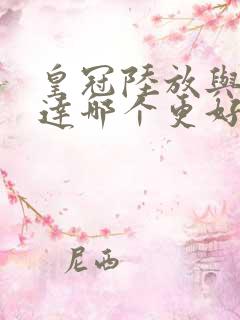 皇冠陸放與
達哪个更好
尼西